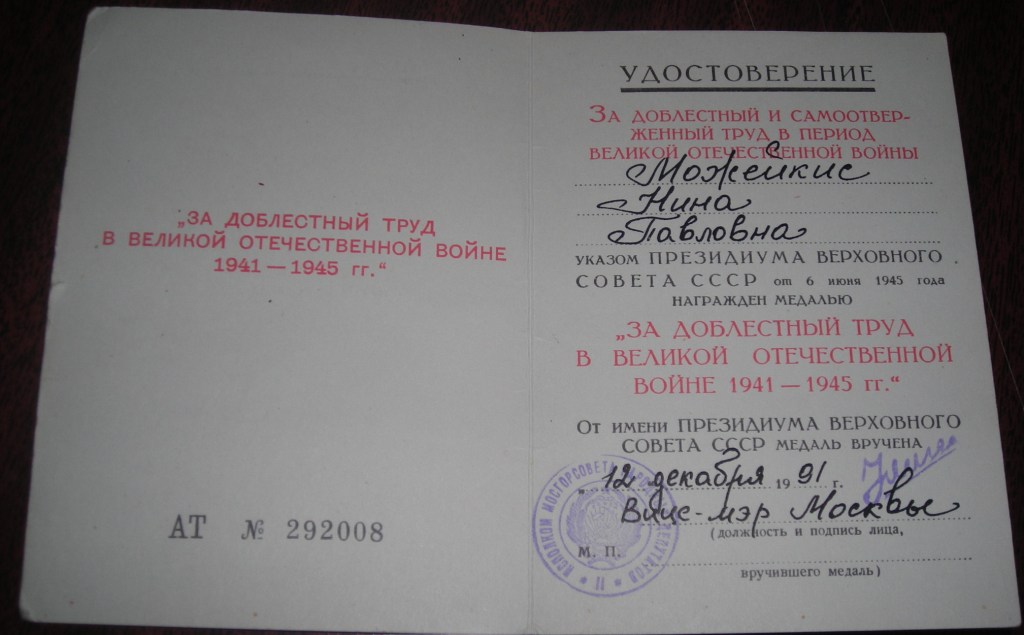 „ЗА ДОБЛЕСТНЫЙ ТРУД
В ВЕЛИКОЙ ОТЕЧЕСТВЕННОЙ ВОЙНЕ
1941 — 1945 гг.“
АТ № 292008
УДОСТОВЕРЕНИЕ
ЗА ДОБЛЕСТНЫЙ И САМООТВЕР-
ЖЕННЫЙ ТРУД В ПЕРИОД
ВЕЛИКОЙ ОТЕЧЕСТВЕННОЙ ВОЙНЫ
Можейкис
Нина
Павловна
УКАЗОМ ПРЕЗИДИУМА ВЕРХОВНОГО
СОВЕТА СССР от 6 июня 1945 года
НАГРАЖДЕН МЕДАЛЬЮ
„ЗА ДОБЛЕСТНЫЙ ТРУД
В ВЕЛИКОЙ ОТЕЧЕСТВЕННОЙ
ВОЙНЕ 1941 — 1945 гг.“
ОТ ИМЕНИ ПРЕЗИДИУМА ВЕРХОВНОГО
СОВЕТА СССР МЕДАЛЬ ВРУЧЕНА
„ 12 декабря 1991 г.
Вице-мэр Москвы
(должность и подпись лица,
М. П.
вручившего медаль)
ИСПОЛКОМ МОСГОРСОВЕТА ДЕПУТАТОВ